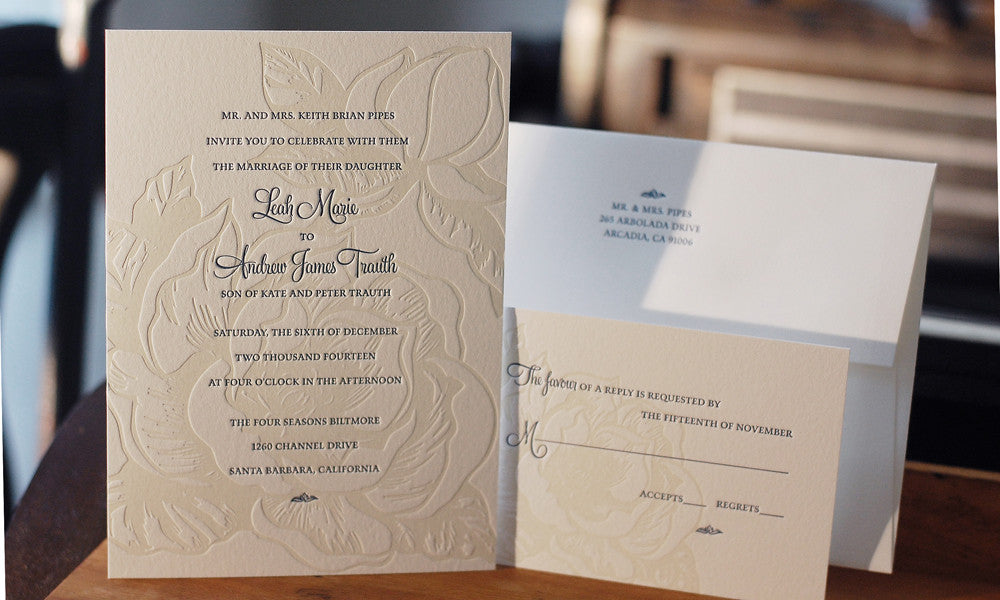 MR. AND MRS. KEITH BRIAN PIPES
INVITE YOU TO CELEBRATE WITH THEM
THE MARRIAGE OF THEIR DAUGHTER
Leah Marie
TO
Andrew James Trauth
SON OF KATE AND PETER TRAUTH
SATURDAY, THE SIXTH OF DECEMBER
TWO THOUSAND FOURTEEN
AT FOUR O'CLOCK IN THE AFTERNOON
THE FOUR SEASONS BILTMORE
1260 CHANNEL DRIVE
SANTA BARBARA, CALIFORNIA
MR. & MRS. PIPES
265 ARBOLADA DRIVE
ARCADIA, CA 91006
The favour OF A REPLY IS REQUESTED BY
THE FIFTEENTH OF NOVEMBER
M
ACCEPTS___ REGRETS___